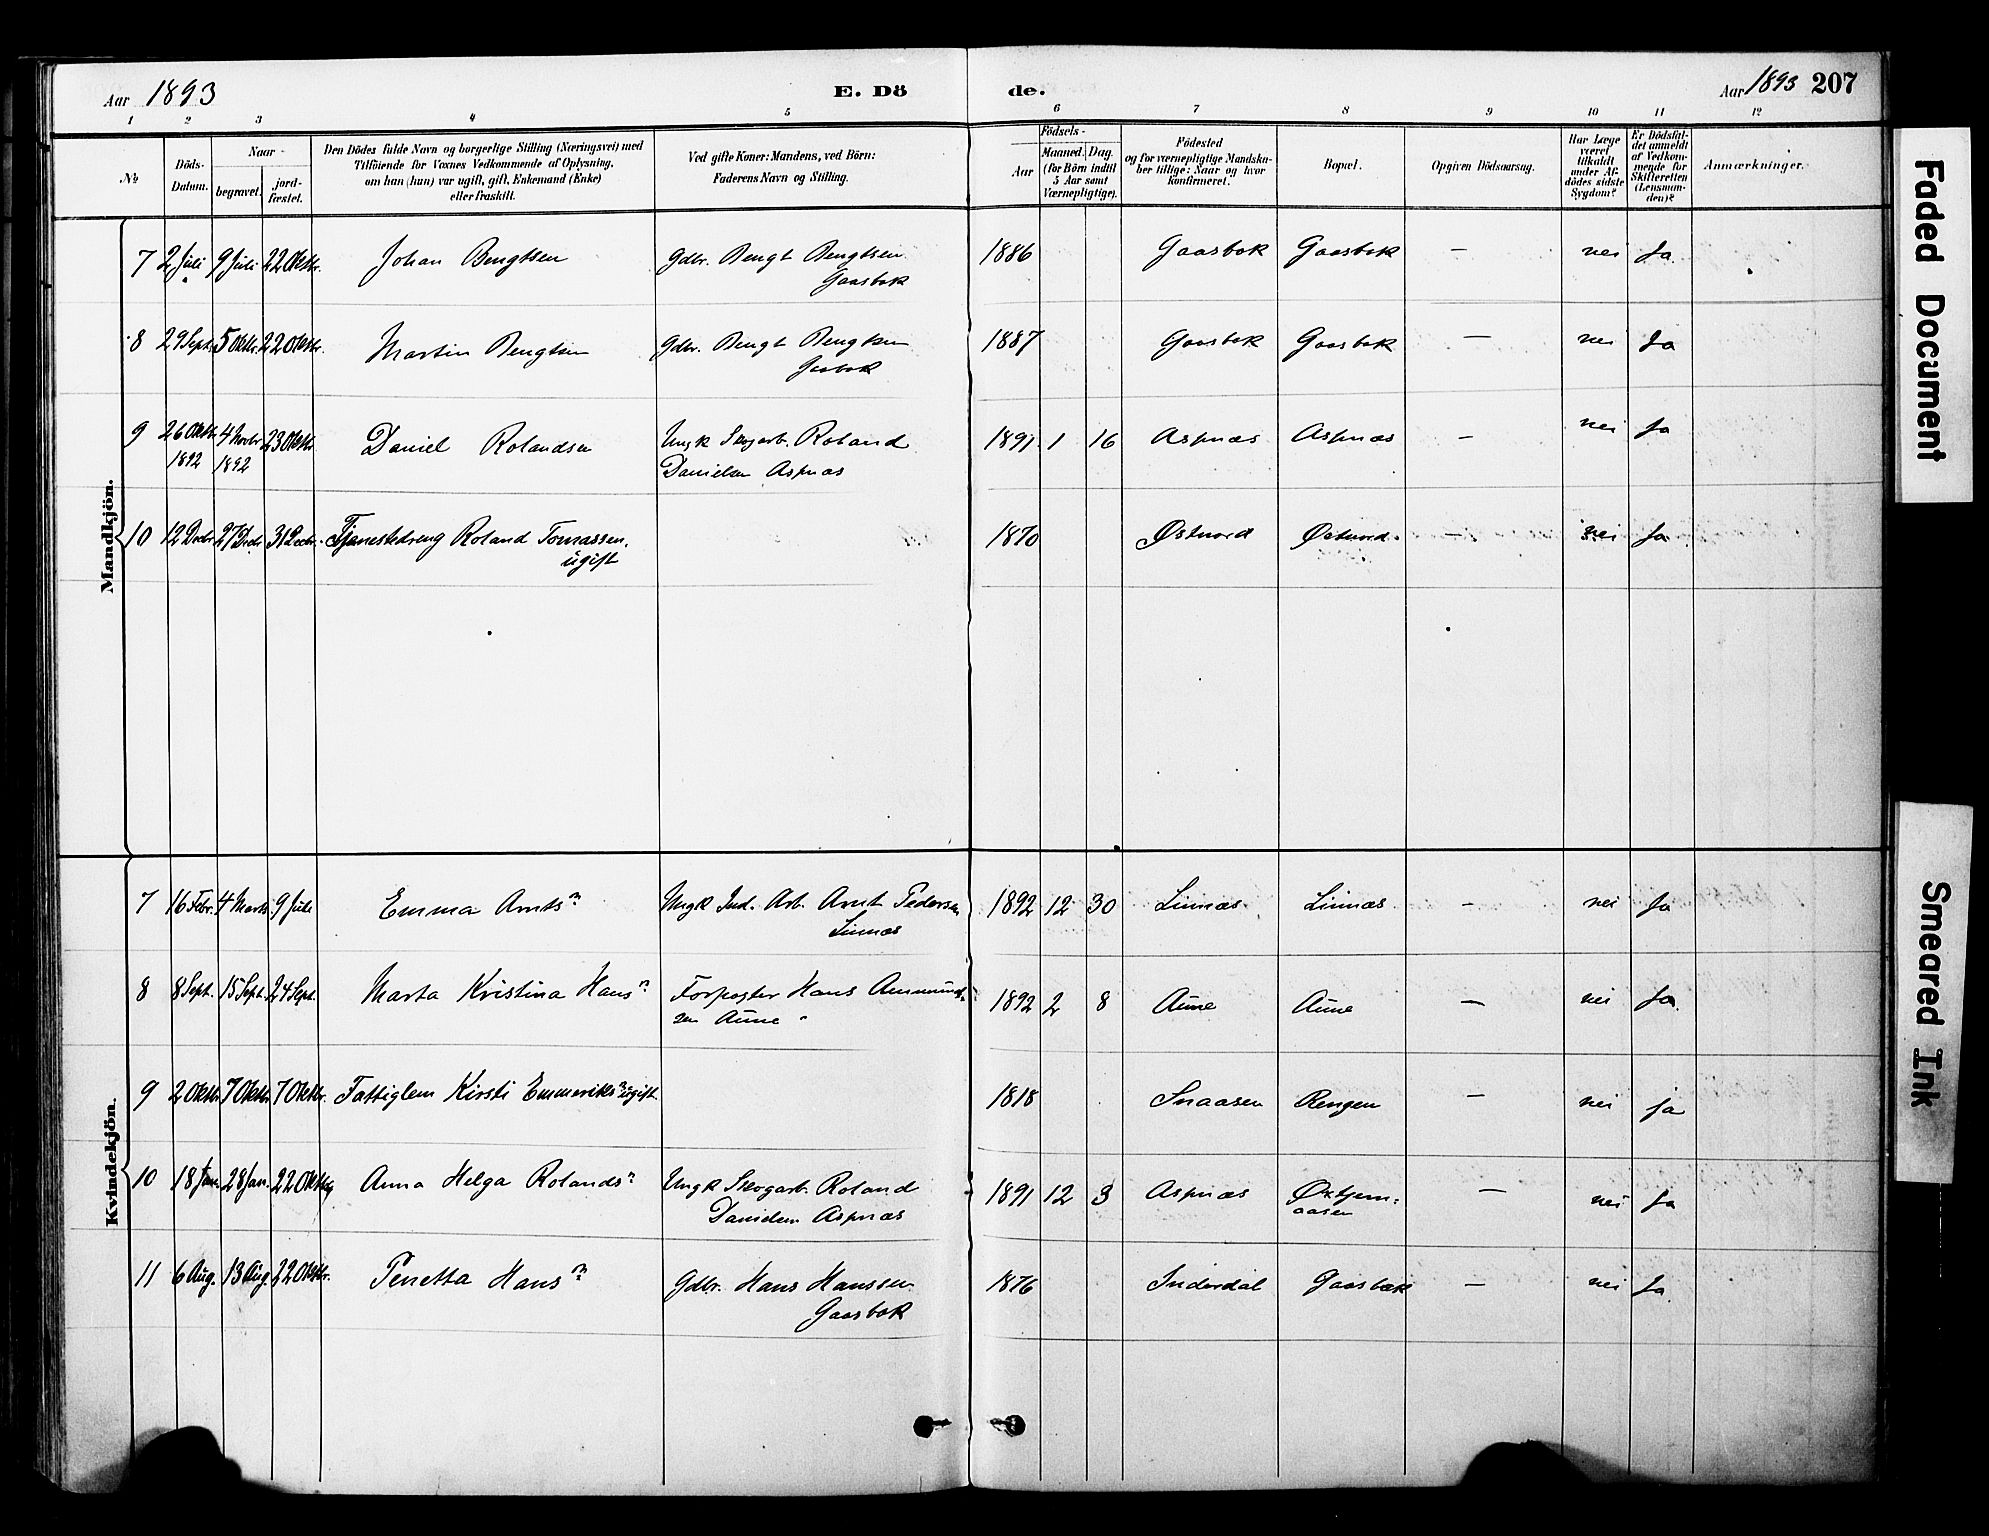 Aar 1893
E. Dö
de.
Aar 1893 207
1 2 3 4 5 6 7 8 9 10 11 12
№
Döds-
Datum.
Naar
begravet.
jord-
fæstet.
Den Dödes fulde Navn og borgerlige Stilling (Næringsvei) med
Tilföiende for Voxnes Vedkommende af Oplysning,
om han (hun) var ugift, gift, Enkemand (Enke)
eller fraskilt.
Ved gifte Koner: Mandens, ved Börn:
Faderens Navn og Stilling.
Födsels-
Aar
Maaned. Dag.
(for Börn indtil
5 Aar samt
Værnepligtige).
Födested
og for værnepligtige Mandska-
ber tillige: Naar og hvor
konfirmeret.
Bopæl.
Opgiven Dödsaarsag.
Har Læge
været
tilkaldt
under Af-
dödes sidste
Sygdom?
Er Dödsfal-
det anmeldt
af Vedkom-
mende for
Skifteretten
(Lensman-
den)?
Anmærkninger.
Mandkjön.
7 2 Juli 9 Juli 22 Oktbr. Johan Bengtsen Gdbr. Bengt Bengtsen 1886 Gaasbok Gaasbok — nei Ja
Gaasbok
8 29 Sept. 5 Oktbr. 22 Oktbr. Martin Bengtsen Gdbr. Bengt Bengtsen 1887 Gaasbok Gaasbok — nei Ja
Gasbok
9 26 Oktbr. 4 Novbr 23 Oktbr Daniel Rolandsen Ungk Skogarb. Roland 1891 1 16 Aspnæs Aspnæs — nei Ja
1892 1892 Danielsen Aspnæs
10 12 Decbr 27 Decbr 31 Decbr. Tjenestedreng Roland Tomassen. 1870 Østnord Østnord — nei Ja
ugift
Kvindekjön.
7 16 Febr. 4 Marts 9 Juli Emma Arntsn Ungk Ind. Arb. Arnt Pedersen 1892 12 30 Linnæs Linnæs — nei Ja
Linnæs
8 8 Sept. 15 Sept. 24 Sept. Marta Kristina Hansn Forpagter Hans Ammund- 1892 2 8 Aune Aune — nei Ja
sen Aune
9 2 Oktbr 7 Oktbr 7 Oktbr. Fattiglem Kirsti Emmeriksn ugift 1818 Snaasen Rengen — nei ja
10 18 Jan. 28 Jan. 22 Oktbr Anna Helga Rolandsn Ungk Skogarb. Roland 1891 12 3 Aspnæs Øxtjern- — nei Ja
Danielsen Aspnæs aasen
11 6 Aug. 13 Aug. 22 Oktbr. Penetta Hansn Gdbr. Hans Hanssen 1876 Inderdal Gaasbak — nei Ja
Gaasbok
Faded Document
Smeared Ink